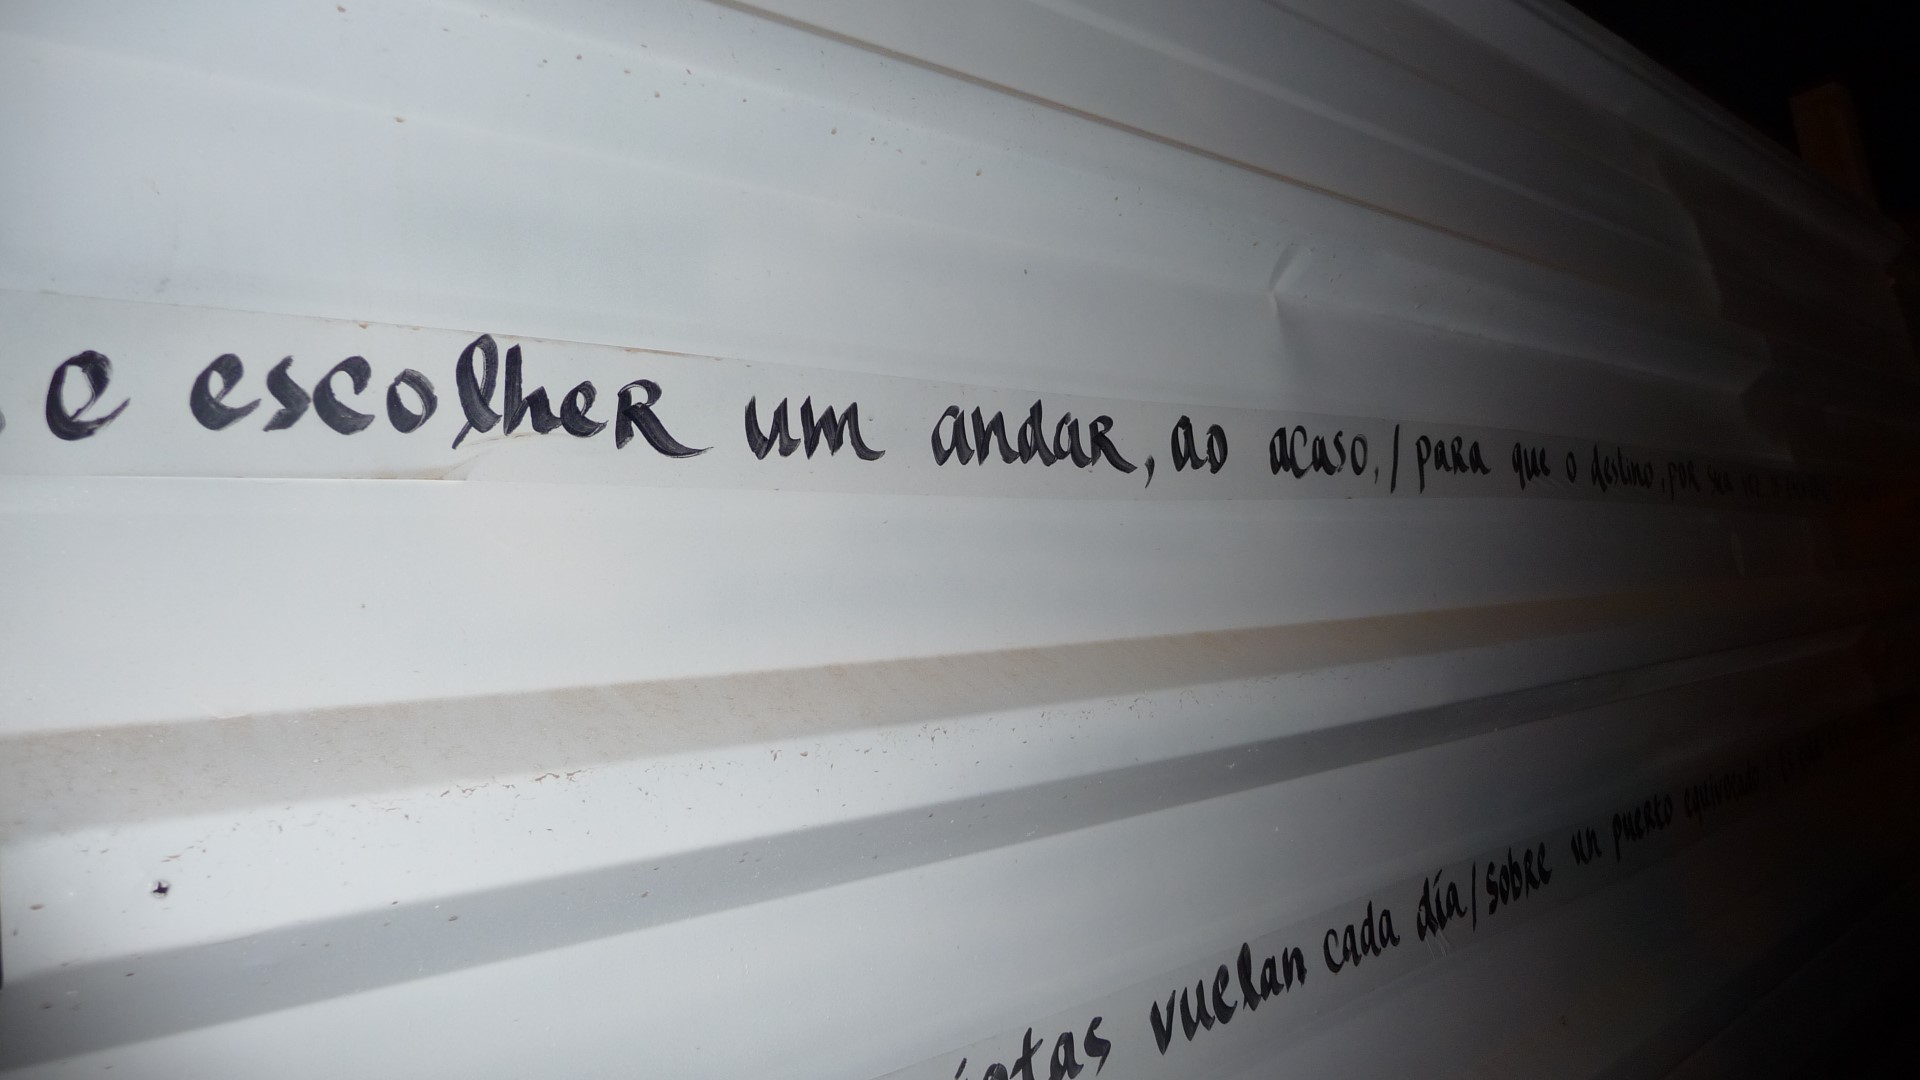 e escolher um andar, ao acaso, / para que o destino, por sua vez
vuelan cada día / sobre un puerto equivocado /